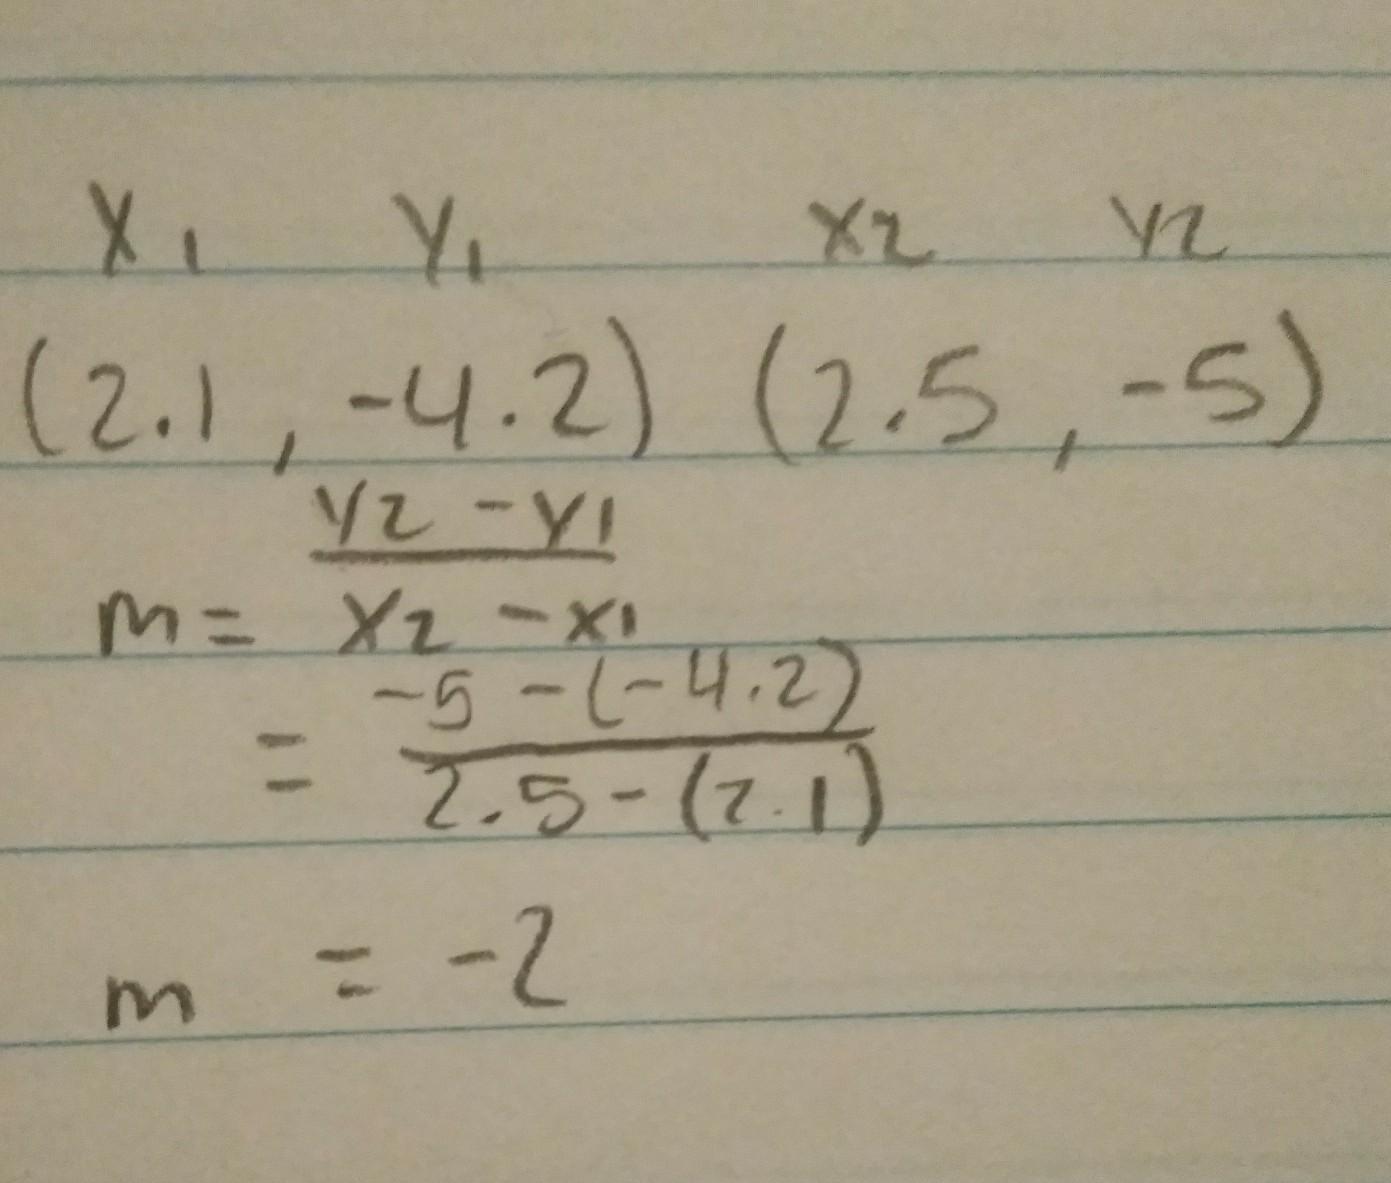 x1 y1 x2 y2
(2.1, -4.2) (2.5, -5)
y2 - y1
m = x2 - x1
-5 - (-4.2)
=
2.5 - (2.1)
m = -2